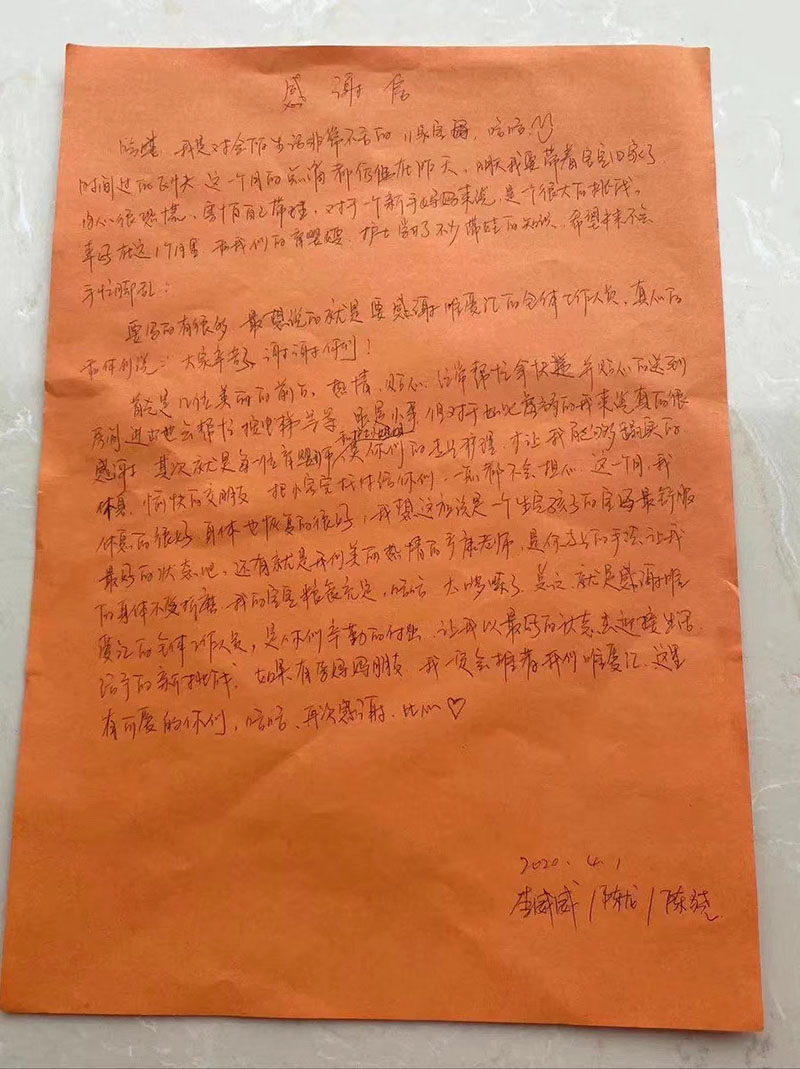 感谢信
哈喽，我是对会所生活非常不舍的 宝妈，哈哈
时间过的飞快 这一个月的点滴都仿佛在昨天，明天我要带着宝宝回家了
内心很恐慌，害怕自己带娃，对于一个新手妈妈来说，是一个很大的挑战。
幸好在这1个月里 和我们的育婴师、护士学了不少带娃的知识、希望未来不会
手忙脚乱！
要写的有很多 最想说的就是要感谢唯爱汇的全体工作人员，真心的
和你们说：大家辛苦了 谢谢你们！
首先是几位美丽的前台，热情、贴心、经常帮忙拿快递 并贴心的送到
房间 进出也会帮忙按电梯等等 虽是小事 但对于 的我来说真的很
感谢 其次就是每一位育婴师 你们的 ，才让我能够踏实的
休息，愉快的交朋友 把小宝宝托付给你们，一点都不会担心。这一个月，我
休息的很好 身体也恢复的很好，我想这应该是一个生完孩子的宝妈最舒服
最好的状态吧。还有就是我们美丽热情的产康老师，是你 的手法 让我
的身体不受折磨，我的宝宝粮食充足，哈哈 太啰嗦了 总之 就是感谢唯
爱汇的全体工作人员，是你们辛勤的付出 让我以最好的状态去迎接生活
给予的新挑战，如果有孕妈妈朋友 我一定会推荐我们唯爱汇，这里
有可爱的你们，哈哈、再次感谢，比心♡
2020.4.1
李威威/陈龙/陈